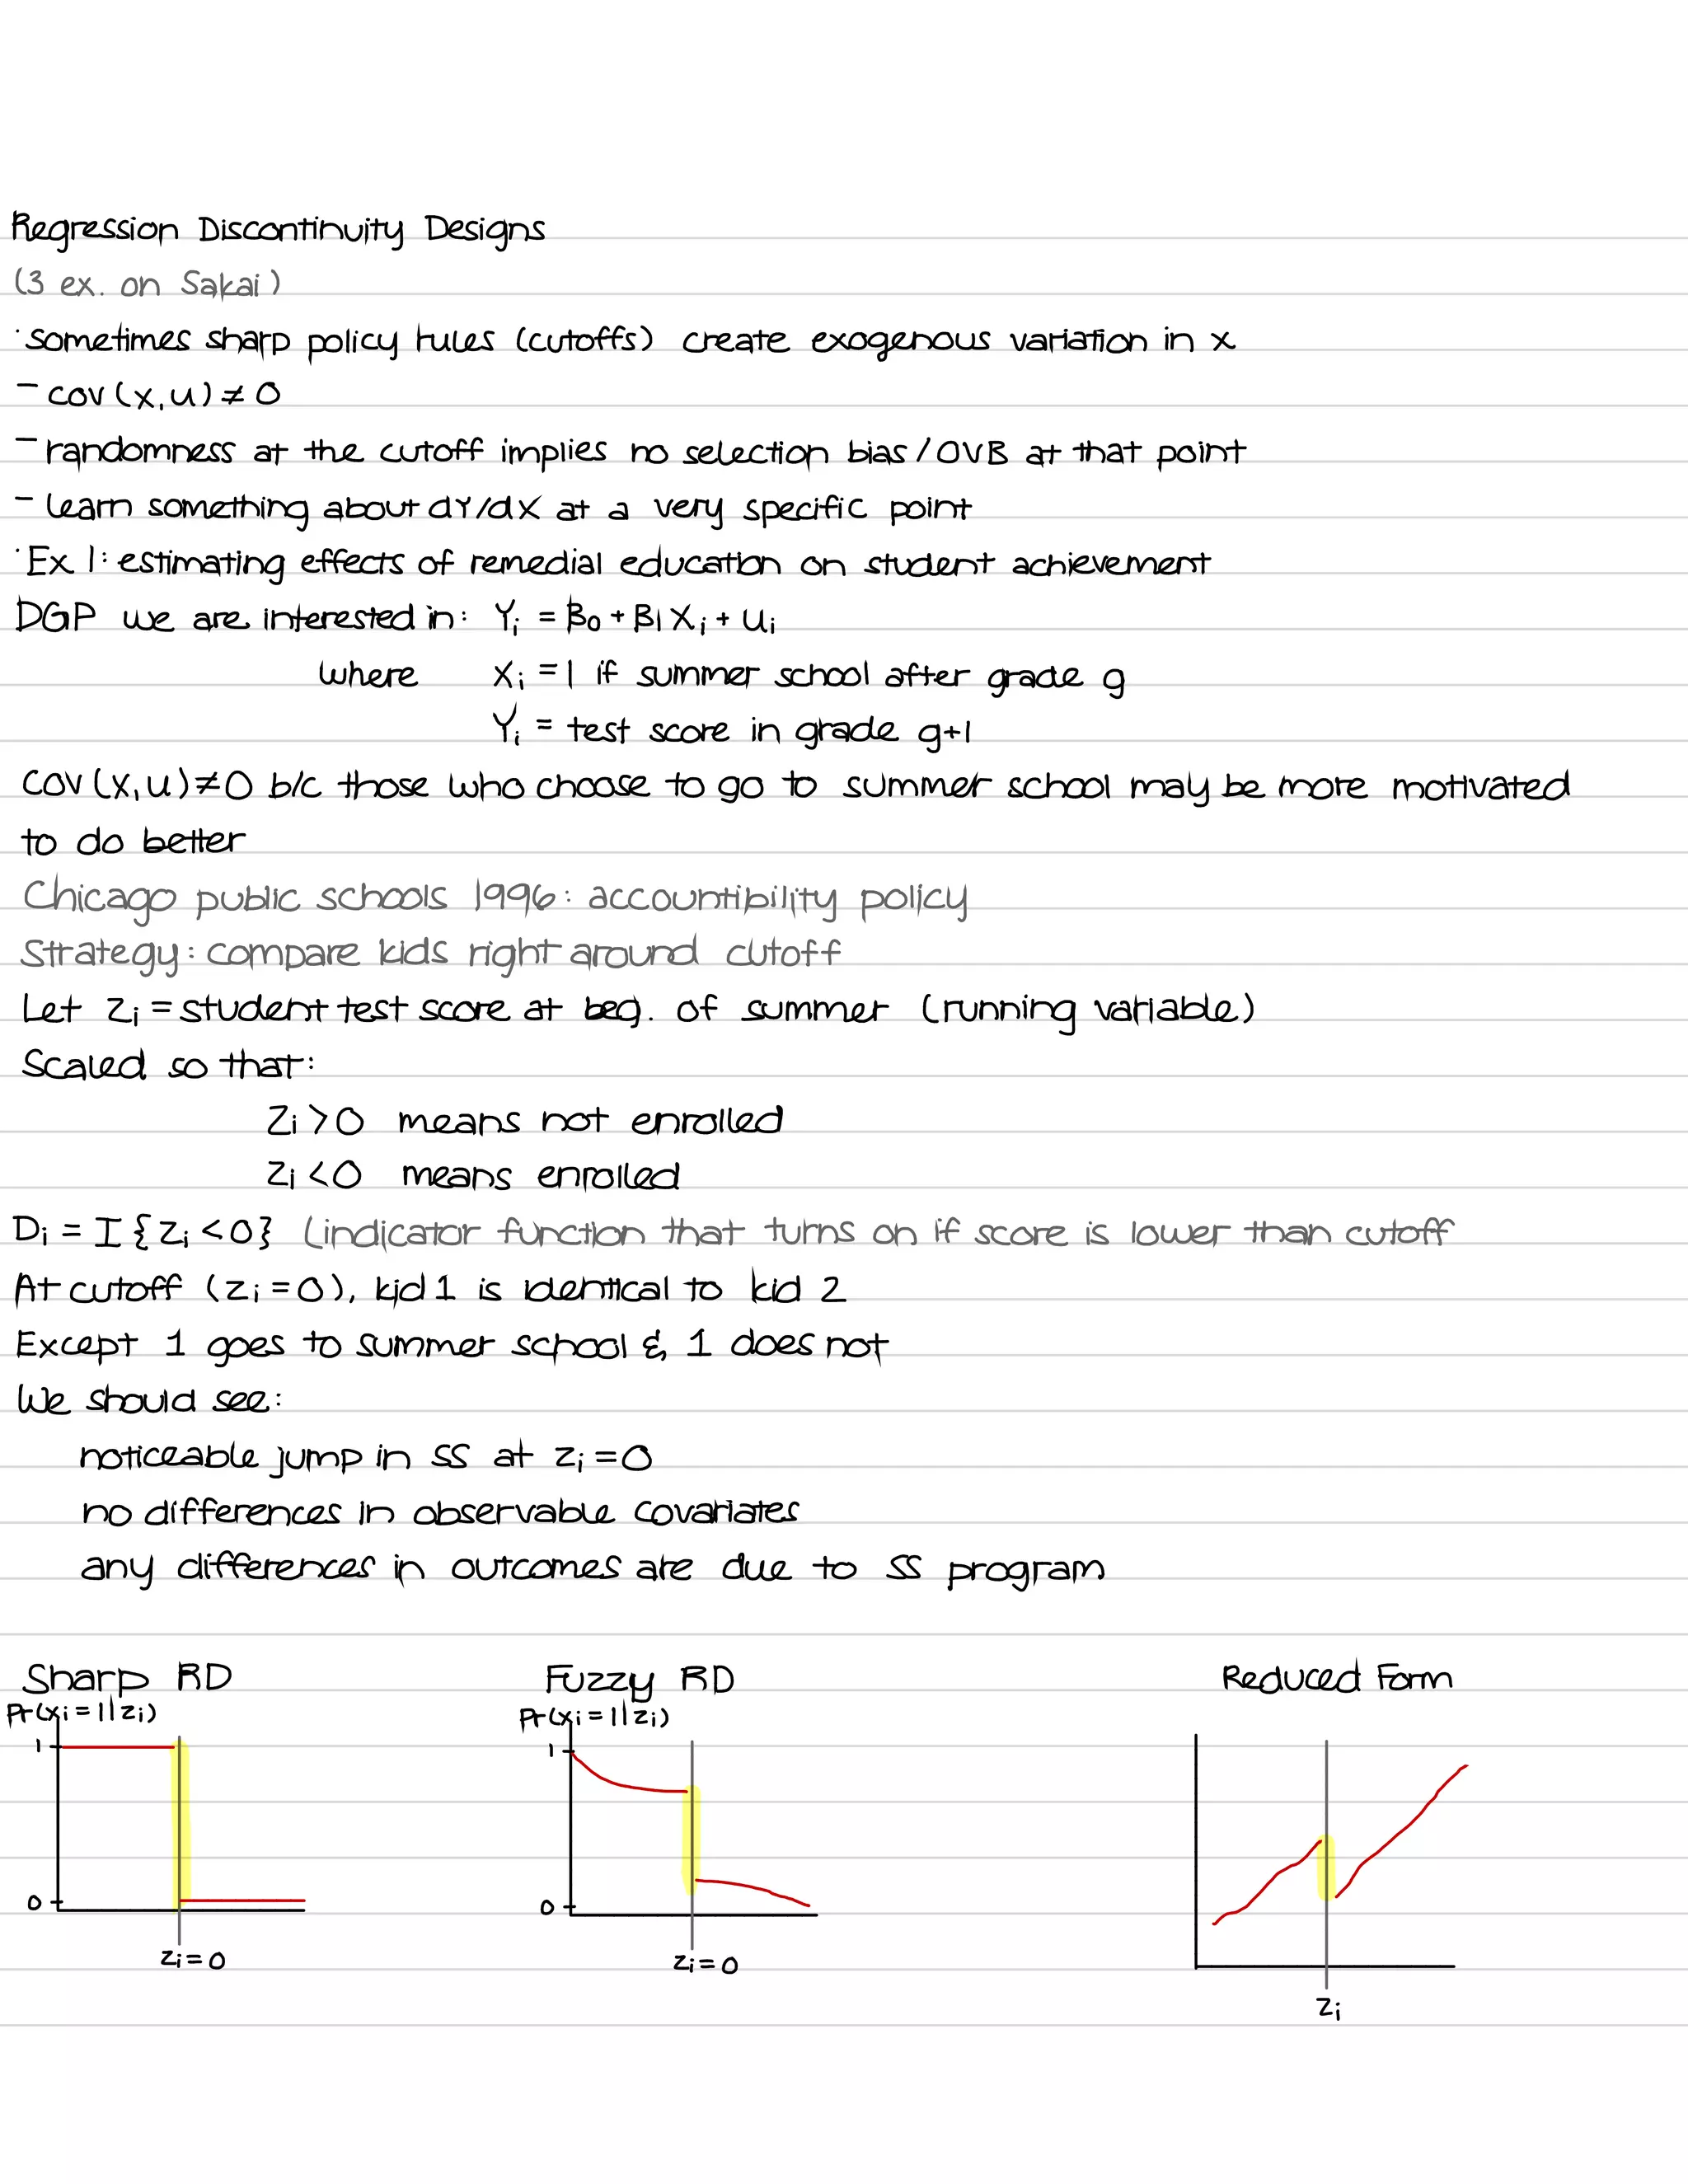 Regression Discontinuity Designs
(3 ex. on Sakai)
·sometimes sharp policy rules (cutoffs) create exogenous variation in x
- cov(x,u)≠0
- randomness at the cutoff implies no selection bias/OVB at that point
- learn something about dY/dX at a very specific point
·Ex 1: estimating effects of remedial education on student achievement
DGP we are interested in: Yi = β0 + β1 Xi + ui
where Xi = 1 if summer school after grade g
Yi = test score in grade g+1
cov(x,u)≠0 b/c those who choose to go to summer school may be more motivated
to do better
Chicago public schools 1996: accountibility policy
Strategy: compare kids right around cutoff
Let zi = student test score at beg. of summer (running variable)
Scaled so that:
Zi>0 means not enrolled
Zi<0 means enrolled
Di = I{Zi<0} (indicator function that turns on if score is lower than cutoff
At cutoff (zi=0), kid 1 is identical to kid 2
Except 1 goes to summer school & 1 does not
We should see:
noticeable jump in SS at zi=0
no differences in observable covariates
any differences in outcomes are due to SS program
Sharp RD Fuzzy RD Reduced Form
Pr(xi=1|zi) Pr(xi=1|zi)
1 1
0 0
zi=0 zi=0
zi